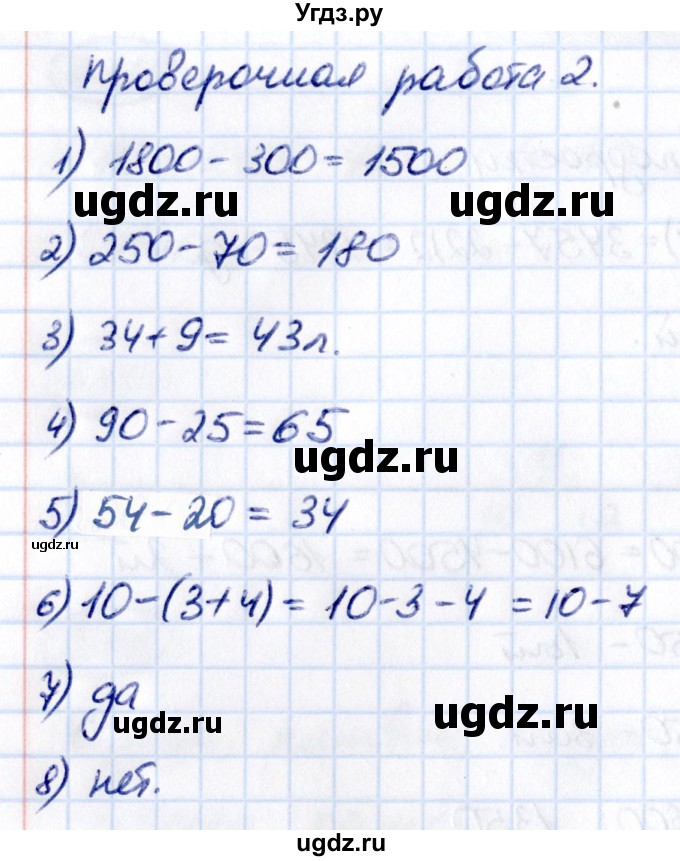 Угдз.ру
Проверочная работа 2.
1) 1800 - 300 = 1500
ugdz.ru ugdz.ru
2) 250 - 70 = 180
3) 34 + 9 = 43 л.
4) 90 - 25 = 65
ugdz.ru
5) 54 - 20 = 34
ugdz.ru
6) 10 - (3 + 4) = 10 - 3 - 4 = 10 - 7
7) да
ugdz.ru ugdz.ru
8) нет.
ugdz.ru